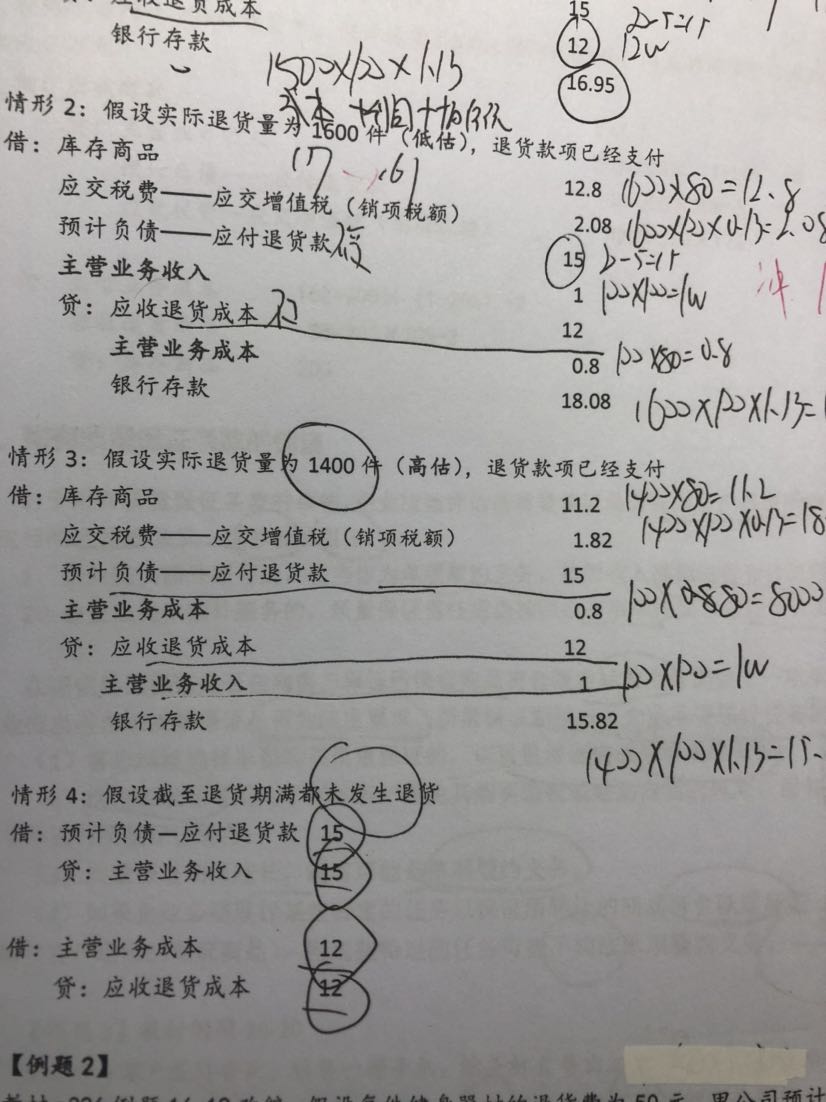 应收退货成本 15 2-5=15
银行存款 12 12w
1500×100×1.13 16.95
情形 2：假设实际退货量为 1600 件（低估），退货款项已经支付
借：库存商品 12.8 1600×80=12.8
应交税费——应交增值税（销项税额） 2.08 1600×100×0.13=2.08
预计负债——应付退货款 15 2-5=15
主营业务收入 1 100×100=1w 冲
贷：应收退货成本 12
主营业务成本 0.8 100×80=0.8
银行存款 18.08 1600×100×1.13=1
情形 3：假设实际退货量为 1400 件（高估），退货款项已经支付
借：库存商品 11.2 1400×80=11.2
应交税费——应交增值税（销项税额） 1.82 1400×100×0.13=18
预计负债——应付退货款 15
主营业务成本 0.8 80=8000
贷：应收退货成本 12
主营业务收入 1 100×100=1w
银行存款 15.82
1400×100×1.13=15.
情形 4：假设截至退货期满都未发生退货
借：预计负债—应付退货款 15
贷：主营业务收入 15
借：主营业务成本 12
贷：应收退货成本 12
【例题 2】